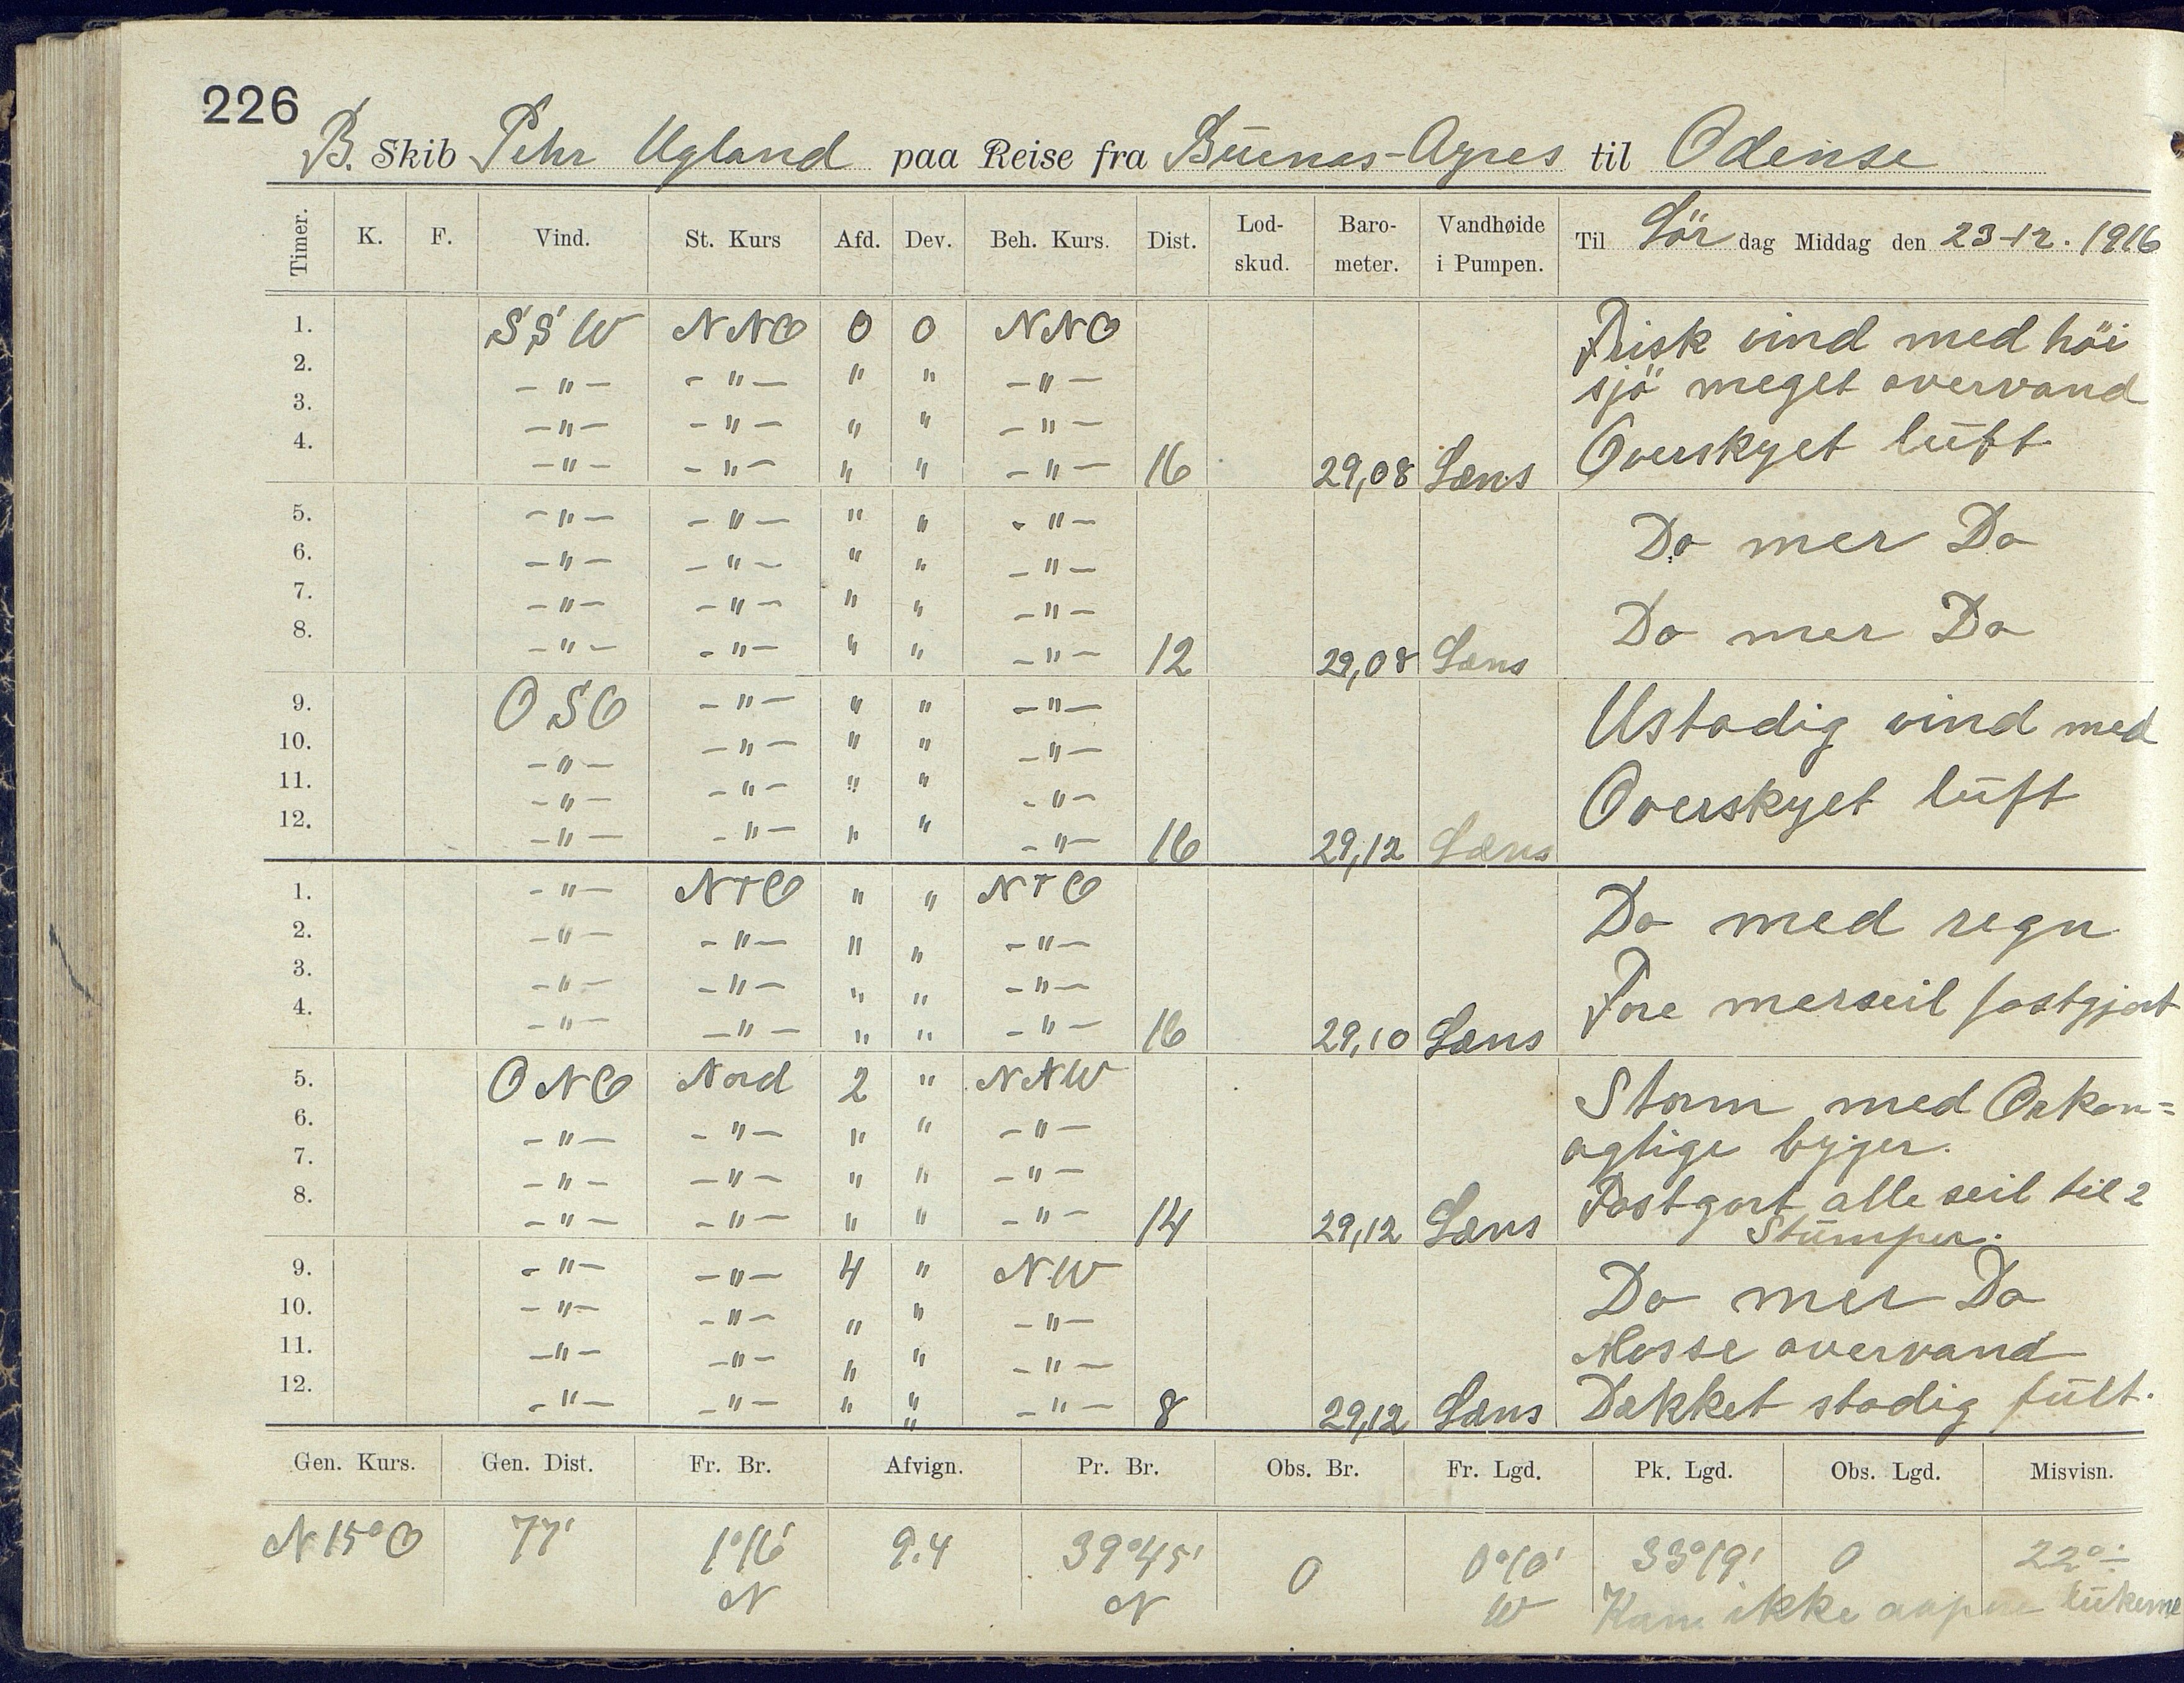 226
B. Skib Pehr Ugland paa Reise fra Buenos-Ayres til Odense
Timer. K. F. Vind. St. Kurs Afd. Dev. Beh. Kurs. Dist. Lod-skud. Baro-meter. Vandhøide i Pumpen. Til Lör dag Middag den 23-12. 1916
1. SSW NNO 0 0 NNO Frisk vind med höi
2. -"- -"- " " -"- sjö meget overvand
3. -"- -"- " " -"-
4. -"- -"- " " -"- 16 29,08 Læns Overskyet luft
5. -"- -"- " " -"- Do mer Do
6. -"- -"- " " -"-
7. -"- -"- " " -"- Do mer Do
8. -"- -"- " " -"- 12 29,08 Læns
9. OSO -"- " " -"- Ustadig vind med
10. -"- -"- " " -"-
11. -"- -"- " " -"- Overskyet luft
12. -"- -"- " " -"- 16 29,12 Læns
1. -"- NTO " " NTO Do med regn
2. -"- -"- " " -"-
3. -"- -"- " " -"- Fore merseil fastgjort
4. -"- -"- " " -"- 16 29,10 Læns
5. ONO Nord 2 " NNW Storm med Orkan=
6. -"- -"- " " -"- agtige byger.
7. -"- -"- " " -"- Fastgort alle seil til 2
8. -"- -"- " " -"- 14 29,12 Læns Stumper.
9. -"- -"- 4 " NW Do mer Do
10. -"- -"- " " -"-
11. -"- -"- " " -"- Masse overvand
12. -"- -"- " " -"- 8 29,12 Læns Dækket stadig fult.
"
Gen. Kurs. Gen. Dist. Fr. Br. Afvign. Pr. Br. Obs. Br. Fr. Lgd. Pk. Lgd. Obs. Lgd. Misvisn.
N 15° O 77' 1°16' 9.4 39°45' 0 0°10' 33°19' 0 22° ÷
N N W Kan ikke aapne lukerne